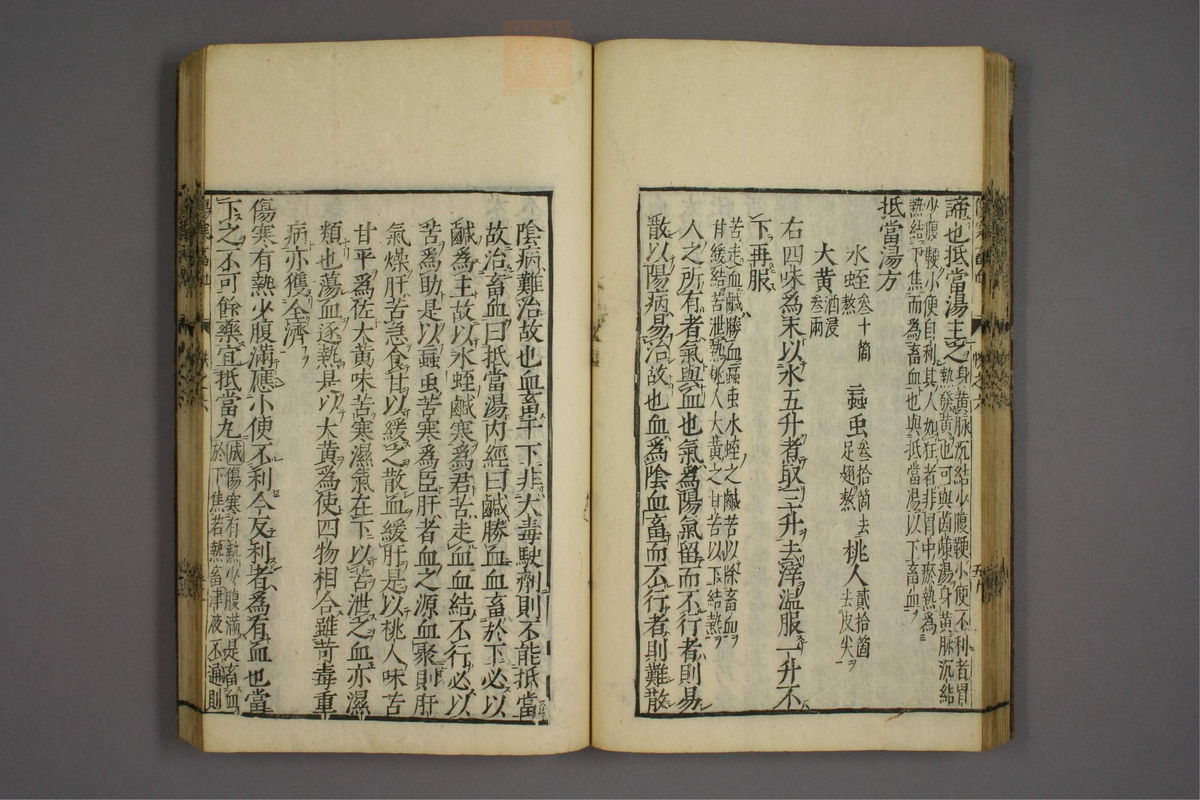 諦也抵當湯主之身黃脉沉結少腹鞕小便不利者胃
熱發黃也可與茵蔯湯身黃脉沉結
少腹鞕小便自利其人如狂者非胃中瘀熱為
熱結下焦而為畜血也與抵當湯以下畜血
抵當湯方
水蛭叁十箇熬 䖟虫叁拾箇去足翅熬 桃人貳拾箇去皮尖
大黃叁兩酒浸
右四味為末以水五升煮取三升去滓溫服一升不
下再服
苦走血鹹勝血䖟虫水蛭之鹹苦以除畜血
甘緩結苦泄熱桃人大黃之甘苦以下結熱
人之所有者氣與血也氣為陽氣留而不行者則易
散以陽病易治故也血為陰血畜而不行者則難散
陰病難治故也血畜于下非大毒駛劑則不能抵當
故治畜血曰抵當湯內經曰鹹勝血血畜於下必以
鹹為主故以水蛭鹹寒為君苦走血血結不行必以
苦為助是以䖟虫苦寒為臣肝者血之源血聚則肝
氣燥肝苦急急食甘以緩之散血緩肝是以桃人味苦
甘平為佐大黃味苦寒濕氣在下以苦泄之血亦濕
類也蕩血逐熱是以大黃為使四物相合雖苛毒重
病亦獲全濟
傷寒有熱少腹滿應小便不利今反利者為有血也當
下之不可餘藥宜抵當丸
傷寒有熱少腹滿是畜血
於下焦若熱畜津液不遍則